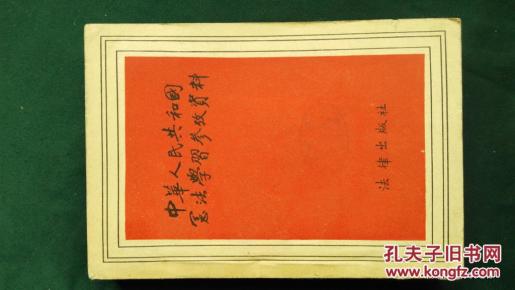 中華人民共和國
憲法學習参攷資料
法律出版社
孔夫子旧书网